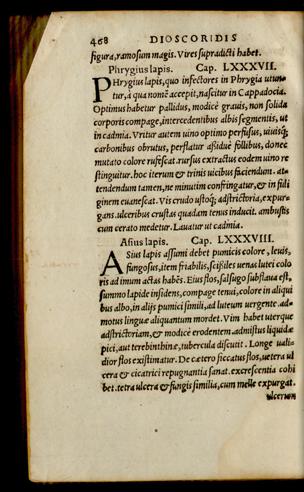 468 DIOSCORIDIS
figura, ramosum magis. Vires supradicti habet.
Phrygius lapis. Cap. LXXXVII.
PHrygius lapis, quo infectores in Phrygia utun-
tur, à qua nomē accepit, nascitur in Cappadocia.
Optimus habetur pallidus, modicè grauis, non solida
corporis compage, intercedentibus albis segmentis, ut
in cadmia. Vritur autem uino optimo perfusus, uiuisq́;
carbonibus obrutus, perflatur aßiduè follibus, donec
mutato colore rufescat. rursus extractus eodem uino re
stinguitur. hoc iterum & trinis uicibus faciendum. at-
tendendum tamen, ne minutim confringatur, & in fuli
ginem euanescat. Vis crudo ustoq́; adstrictoria, expur-
gans. ulceribus crustas quadam tenus inducit. ambustis
cum cerato medetur. Lauatur ut cadmia.
Asius lapis. Cap. LXXXVIII.
ASius lapis assumi debet pumicis colore, leuis,
fungosus, item friabilis, scißiles uenas lutei colo
ris ad imum actas habēs. Eius flos, salsugo subflaua est,
summo lapide insidens, compage tenui, colore in aliqui
bus albo, in alijs pumici simili, ad luteum uergente. ad-
motus linguæ aliquantum mordet. Vim habet uterque
adstrictoriam, & modicè erodentem. admistus liquidæ
pici, aut terebinthinæ, tubercula discutit. Longe uali-
dior flos existimatur. De cætero siccatus flos, uetera ul
cera & cicatrici repugnantia sanat. excrescentia cohi
bet. tetra ulcera & fungis similia, cum melle expurgat.
ulcerum